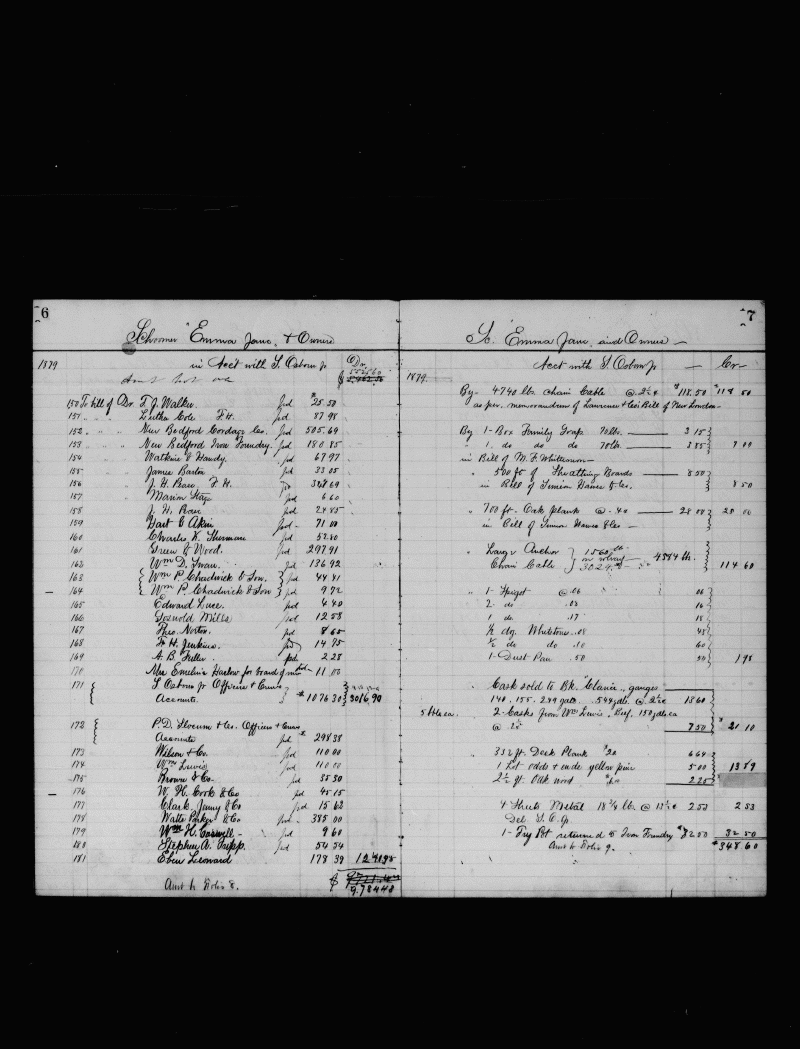 6
Schooner "Emma Jane" & Owners
1879 in Acc't with S. Osborn Jr Dr.
Amt bot ov
150 To bill of Dr. T. J. Walker pd $25.50
151 " " " Luther Cole F.H. pd 87 98
152 " " New Bedford Cordage Co. pd 505.69
153 " " New Bedford Iron Foundry. pd 180 85
154 " Watkins & Handy. pd 67 97
155 " James Barton pd 33 05
156 " J. H. Pease. F. H. pd
157 " Marion Stage pd 6 60
158 J. H. Pease pd 24 85
159 Bart C Akin pd 71 00
160 Charles K. Thurman pd 52.80
161 Green & Wood. pd 297 91
162 Wm D. Swan. pd 136 92
163 Wm P. Chadwick & Son. pd 44 41
164 Wm P. Chadwick & Son pd 9 72
165 Edward Luce. pd 4 40
166 Goswold Mills pd 12 58
167 Theo. Norton. pd 8 65
168 F. H. Jenkins. pd 14 75
169 A. B. Fuller. pd 2 28
170 Mrs Emeline Harlow for board of men pd 11 00
171 S Osborn Jr Officers & Crews
Accounts. $1076 30 3016.90
172 P. D. Slocum & Co. Officers & Crews
Accounts pd 298 38
173 Wilson & Co. pd 110 00
174 Wm Lewis pd 110 00
175 Brown & Co. pd 35 30
176 W. H. Cook & Co pd 45 15
177 Clark, Jenny & Co pd 15 62
178 Watts Parker & Co pd 385 00
179 Wm H. Caswell pd 9 60
180 Stephen A. Tripp. pd 54 54
181 Eben Leonard 178 39 1241 98
Amt to Folio 8. $ 9.784 48
7
Sc. "Emma Jane" and Owners
1879. Acct with S. Osborn Jr — Cr
By 4740 lbs. Chain Cable @ 2½ ¢ $118.50 $118 50
as per. memorandum of Lawrence & Co's Bill of New London
By 1 Box Family Soap 70 lbs. 3 15
" 1. do do do 70 lbs. 3 85 7 00
in Bill of M. F. Whittemore
" 500 ft of Sheathing Boards 8.50
in Bill of Simeon Hawes & Co. 8 50
" 700 ft. Oak Plank @ .40 28 00 28 00
in Bill of Simeon Hawes & Co
" Large Anchor 1560 lbs
Chain Cable 3024 lbs 4584 lbs. 114 60
" 1 Spigot @ .06 06
2. do .08 16
1 do .18 18
½ doz. Whetstone .08 48
½ do do .10 60
1 Dust Pan .50 50 198
" Cask sold to Bk. "Clarice", gauges
140. 155. 249 gals. 544 gals. @ 18 60
2 Casks from Wm Lewis, Beef, 150 gals. ea
@ .25 7 50 $21 10
" 332 ft. Deck Plank $20 6 64
1 Lot odds & ends yellow pine 5 00
2½ ft. Oak wood 2 25 13 89
" 4 Sheets Metal 18¾ lbs. @ 13½ ¢ 2 53 2 53
Del. S. O. Jr
1 Try Pot returned to Iron Foundry $32 50 32 50
Amt to Folio 9. $348 60